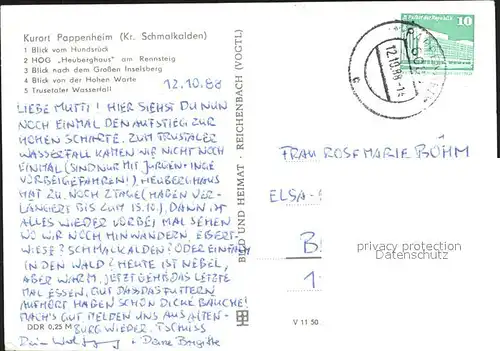 Kurort Pappenheim (Kr. Schmalkalden)
1 Blick vom Hundsrück
2 HOG „Heuberghaus" am Rennsteig
3 Blick nach dem Großen Inselsberg
4 Blick von der Hohen Warte
5 Trusetaler Wasserfall
12.10.88
LIEBE MUTTI! HIER SIEHST DU NUN
NOCH EINMAL DEN AUFSTIEG ZUR
HOHEN SCHARTE. ZUM TRUSTALER
WASSERFALL KAMEN WIR NICHT NOCH
EINMAL (SIND NUR MIT JÜRGEN + INGE
VORBEIGEFAHREN!) HEUBERGHAUS
HAT ZU. NOCH 2 TAGE (HABEN VER-
LÄNGERT BIS ZUM 15.10.), DANN IST
ALLES WIEDER VORBEI MAL SEHEN
WO WIR NOCH HINWANDERN, EBERT-
WIESE? SCHMALKALDEN? ODER EINFACH
IN DEN WALD? HEUTE IST NEBEL,
ABER WARM, JETZT GEHT DAS LETZTE
MAL ESSEN, GUT DASS DAS FUTTERN
AUFHÖRT HABEN SCHON DICKE BÄUCHE!
MACH'S GUT MELDEN UNS AUS ALTEN-
BURG WIEDER. TSCHÜSS
DDR 0,25 M
Dein Wolfgang + Deine Brigitte
BILD UND HEIMAT · REICHENBACH (VOGTL)
V 11 50
12.10.88-14
10
FRAU ROSEMARIE BÖHM
ELSA-
B
1
privacy protection
Datenschutz